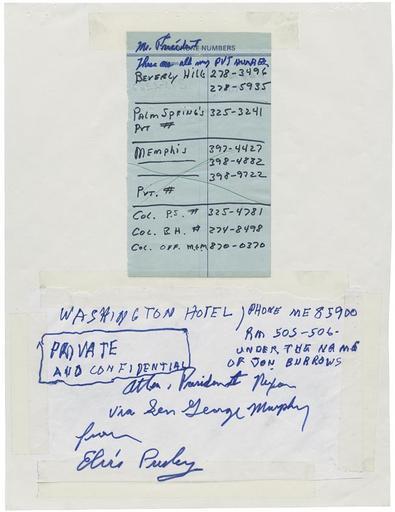 Mr. President
PHONE NUMBERS
These are all my PVT numbers
BEVERLY HILLS 278-3496
278-5935
PALM SPRING'S 325-3241
PVT #
MEMPHIS 397-4427
398-4882
398-9722
PVT. #
COL. P.S. # 325-4781
COL. B.H. # 274-8498
COL. OFF. MGM 870-0370
WASHINGTON HOTEL, PHONE ME 85900
RM 505-506-
UNDER THE NAME
OF JON BURROWS
PRIVATE
AND CONFIDENTIAL
Attn. President Nixon
via Sen George Murphy
from
Elvis Presley